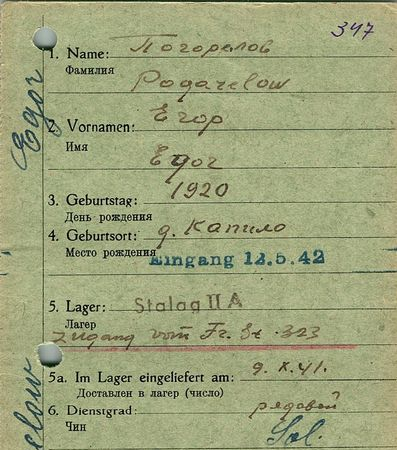 347
1. Name: Погорелов
Фамилия
Pogarelow
2. Vornamen: Егор
Имя
Egor
3. Geburtstag: 1920
День рождения
4. Geburtsort: д. Капило
Место рождения
Eingang 12.5.42
5. Lager: Stalag II A
Лагерь
Zugang vom Fr. St. 323
5a. Im Lager eingeliefert am: 9. X. 41.
Доставлен в лагерь (число)
6. Dienstgrad: рядовой
Чин
Sol.
Egor
elow